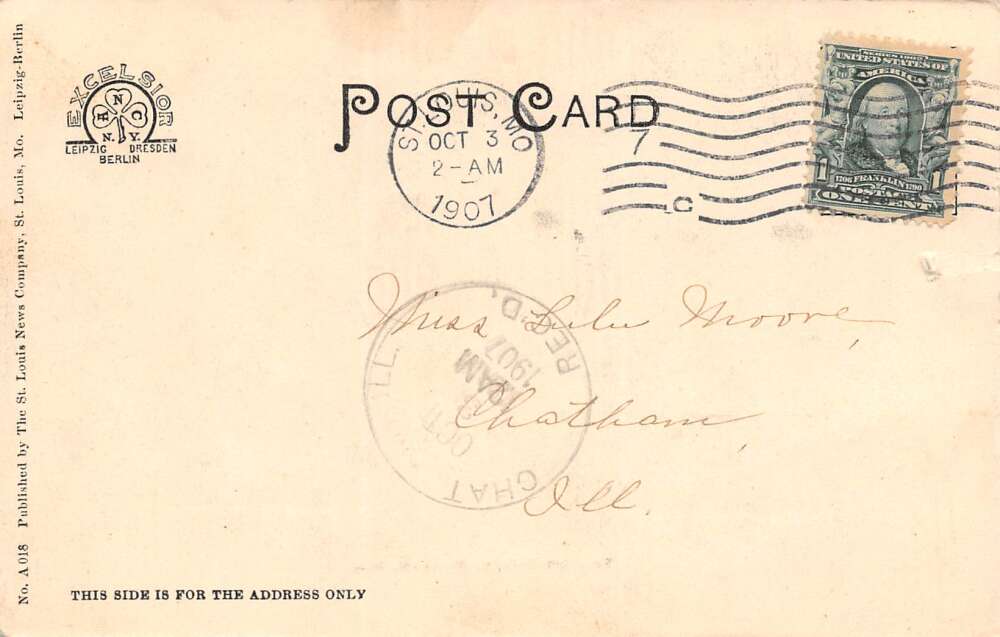 No. A 018 Published by The St. Louis News Company, St. Louis, Mo. Leipzig-Berlin
EXCELSIOR
N
H C
N.Y.
LEIPZIG DRESDEN
BERLIN
POST CARD
ST. LOUIS, MO
OCT 3
2-AM
1907
7
C
SERIES 1902
UNITED STATES OF
AMERICA
1706 FRANKLIN 1790
1 POSTAGE 1
ONE CENT
Miss Lulu Moore,
Chatham,
Ill.
CHAT ILL. REC'D,
OCT
AM
1907
THIS SIDE IS FOR THE ADDRESS ONLY